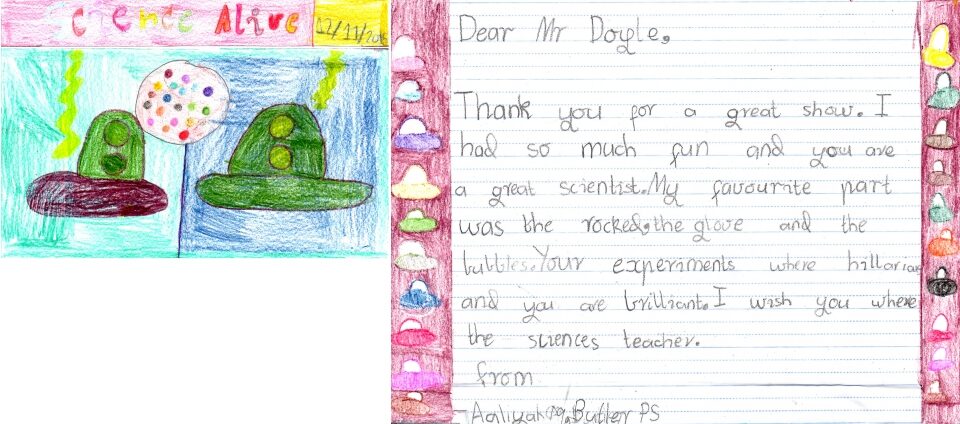 Science Alive
12/11/20
Dear Mr Doyle,
Thank you for a great show. I
had so much fun and you are
a great scientist. My favourite part
was the rocked, the glove and the
bubbles. Your experiments where hillariou
and you are brilliant. I wish you where
the sciences teacher.
from
-Aaliyah Butler PS